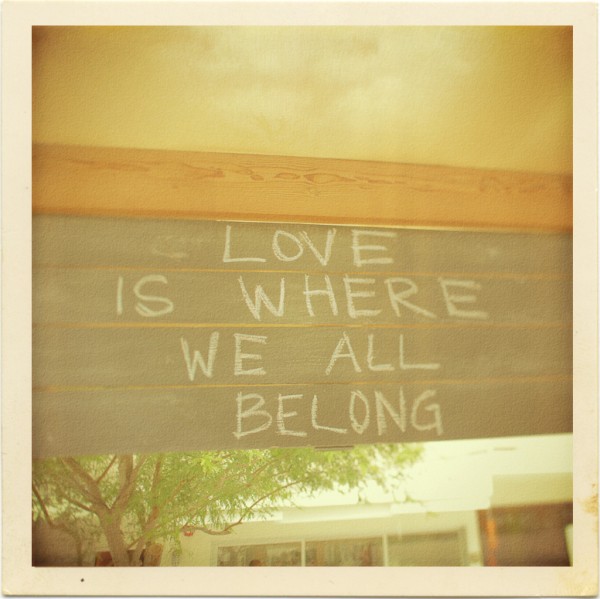 LOVE
IS WHERE
WE ALL
BELONG